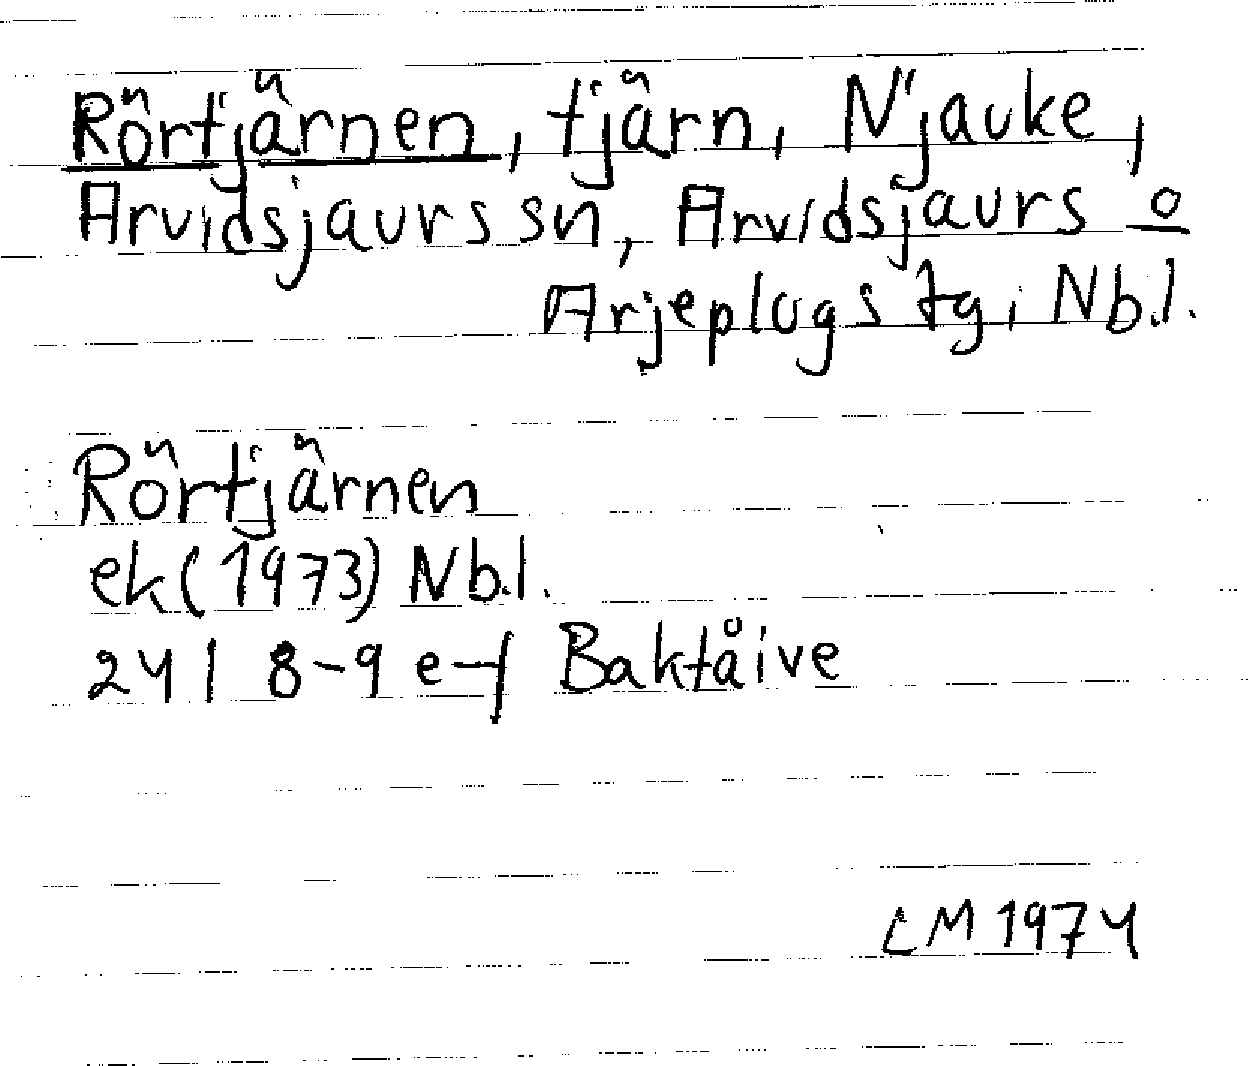 Rörtjärnen, tjärn, Njauke,
Arvidsjaurs sn, Arvidsjaurs o
Arjeplogs tg, Nb.l.
Rörtjärnen
ek (1973) Nb.l.
24 I 8-9 e-f Baktåive
LM 1974